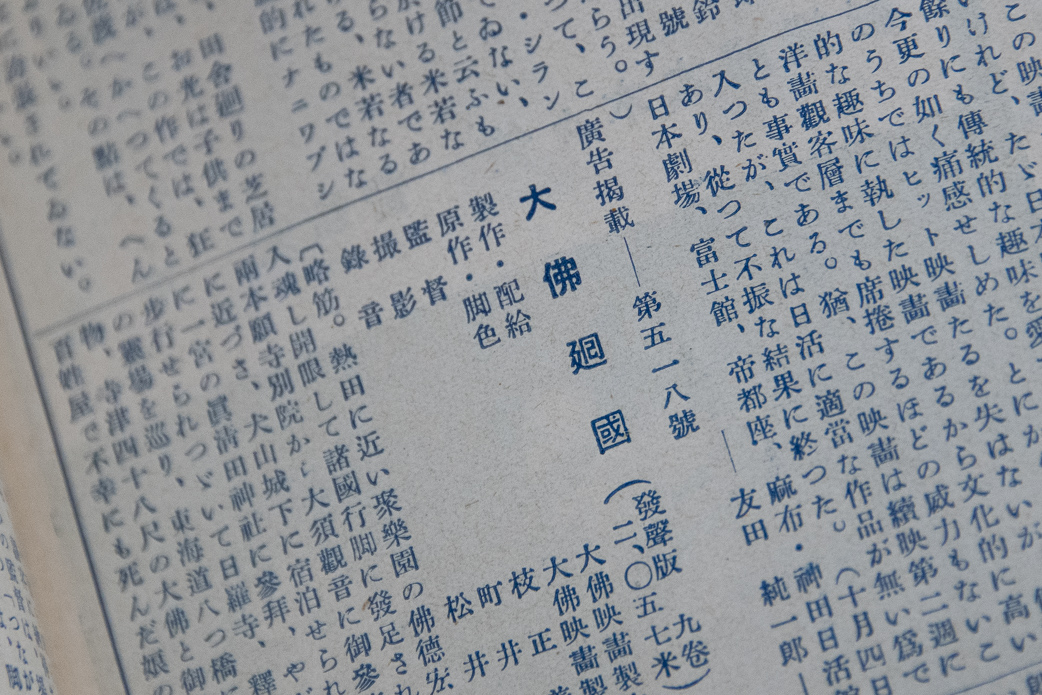 この映畫
いけれど、たゞ日本
餘りにも傳統的な趣味を愛
今更の如く痛感せしめた。とにか
のうちではヒット映畫たるを失はないが
的な趣味に執した映畫であるから文化的に高い
洋畫觀客層までも席捲するほどの威力もないこ
とも事實である。猶、この映畫は續映第二週に
入つたが、これは日活に適當な作品が無い爲で
あり、從つて不振な結果に終つた。(十月四日
日本劇場、富士館、帝都座、麻布・神田日活
―友田 純一郎―
廣告掲載―第五一八號
出現す
らう。
つて、こ
・シラン
でゐない、
節と云ふも
於ける米若な
らない者であ
る、米若なる
れたものではな
的にナニワブシ
田舍廻りの芝居
お光は子供まで
は、この作では、狂
が、かへつてくると
その點は、へん
大佛廻國(發聲版 九卷 二、〇五七米)
製作・配給 大佛映畫製
原作・脚色 大佛映畫製
監督 枝 正
撮影 町 井
錄音 松 井
〔略筋。熱田に近い聚樂園の佛德
入魂し開眼して諸國行脚に發足され
兩本願寺別院から大須觀音に御參
に近づき、犬山城下に宿泊せられ
に一宮の眞淸田神社に參拜、や
步行せられつゞいて日羅寺、釋
の靈場を巡り、東海道八つ橋に
物、寺津四十八尺の大佛と御
百姓屋で不幸にも死んだ娘の